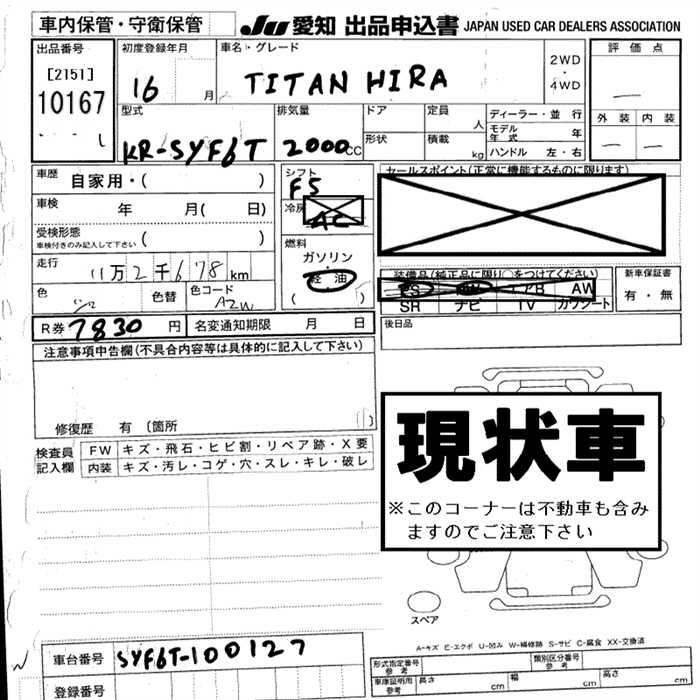 車内保管・守衛保管
JU 愛知 出品申込書 JAPAN USED CAR DEALERS ASSOCIATION
出品番号
[2151]
10167
初度登録年月
16 月
車名・グレード
TITAN HIRA
2WD
・
4WD
評価点
外装 内装
型式
KR-SYF6T
排気量
2000cc
ドア
形状
定員
人
積載
kg
ディーラー・並行
モデル年式 年
ハンドル 左・右
車歴 自家用・( )
車検 年 月( 日)
受検形態
車検付きのみ記入して下さい ( )
走行 11万2千678km
色 色替 色コード
A2W
シフト
F5
冷房
AC
燃料
ガソリン・
軽油
( )
セールスポイント(正常に機能するものに限ります)
装備品(純正品に限り○をつけてください)
PS PW エアB AW
SR ナビ TV カワシート
新車保証書
有・無
R券 7830 円 名変通知期限 月 日
後日品
注意事項申告欄(不具合内容等は具体的に記入して下さい)
修復歴 有 〔箇所 〕
検査員
記入欄
FW キズ・飛石・ヒビ割・リペア跡・X要
内装 キズ・汚レ・コゲ・穴・スレ・キレ・破レ
現状車
※このコーナーは不動車も含み
ますのでご注意下さい
スペア
A-キズ E-エクボ U-凹み W-補修跡 S-サビ C-腐食 XX-交換済
車台番号 SYF6T-100127
登録番号
形式指定番号
参考
類別区分番号
参考
車庫証明用
参考
長さ cm 幅 cm 高さ cm